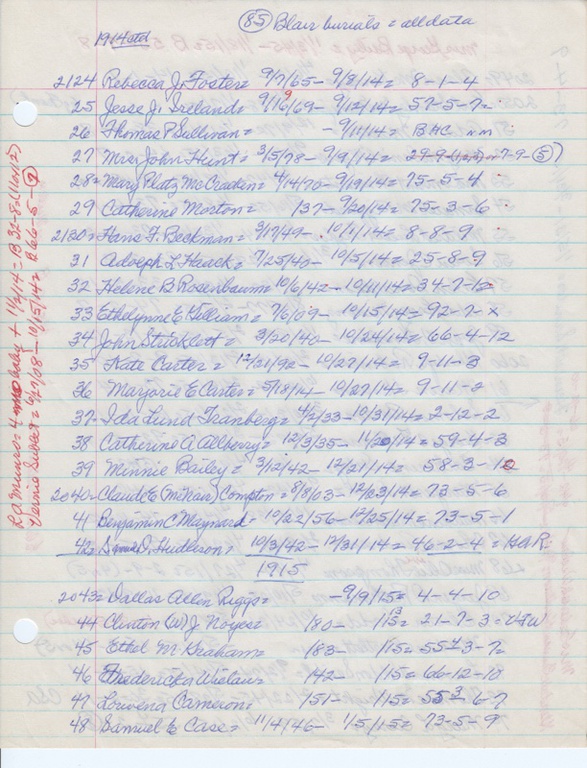 (85) Blair burials = all data
1914 ctd
2124 Rebecca J. Foster = 9/7/65 - 9/8/14 = 8-1-4
25 Jesse J. Ireland = 9/16/69 - 9/12/14 = 57-5-7
26 Thomas P Sullivan = - 9/11/14 = BHC nm
27 Mrs. John Hunt = 3/5/78 - 9/9/14 = 7-9-(5)
28 = Mary Platz McCracken = 4/14/70 - 9/19/14 = 75-5-4
29 Catherine Morton = 137 - 9/20/14 = 75-3-6
2130 = Hans F. Beckman = 3/17/49 - 10/1/14 = 8-8-9
31 Adolph L. Haack = 7/25/40 - 10/5/14 = 25-8-9
32 Helene B Rosenbaum = 10/6/42 - 10/11/14 = 34-7-12
33 Ethelynne E Gilliam = 7/6/09 - 10/15/14 = 92-7-x
34 John Stricklett = 3/20/40 - 10/24/14 = 66-4-12
35 Kate Carter = 12/21/92 - 10/27/14 = 9-11-3
36 Marjorie E Carter = 5/18/14 - 10/27/14 = 9-11-2
37 - Ida Lund Tranberg = 4/2/33 - 10/31/14 = 2-12-2
38 Catherine A Allberry = 12/3/35 - 11/20/14 = 59-4-3
39 Minnie Bailey = 3/12/42 - 12/21/14 = 58-3-10
2040 - Claude E (McNair) Compton = 8/8/63 - 12/23/14 = 73-5-6
41 Benjamin C Maynard = 10/22/56 - 12/25/14 = 73-5-1
42 = D. Hudleson = 10/3/42 - 12/31/14 = 46-2-4 = GAR
1915
2043 = Dallas Allen Riggs = - 9/9/15 = 4-4-10
44 Clinton (W) J. Noyes = 180 - 1/3/15 = 21-7-3 =
45 Ethel M. Graham = 183 - /15 = 3-7
46 Fredericka = 142 - /15 = 66-12-10
47 Lourena Cameron = 151 - /15 = 6-7
48 Samuel E Case = 11/4/46 - 1/5/15 = 73-5-9
RA Munro = 4 mo baby + 11/2/14 = B 32-8-(11 or 12)
Vernie = 6/27/08 - 10/15/14 = B 66-5-(?)